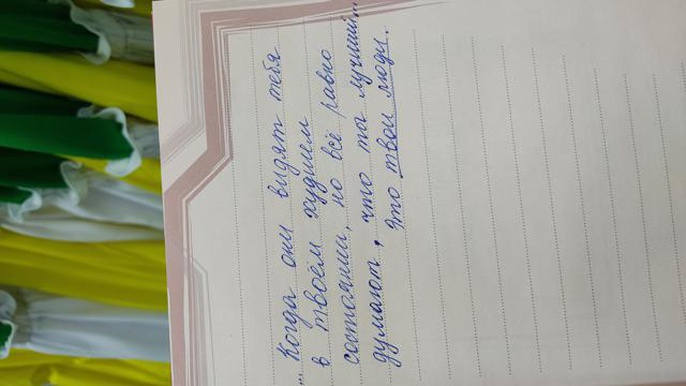 ... Когда они видят тебя
в твоём худшем
состоянии, но всё равно
думают, что ты лучший...
это твои люди.